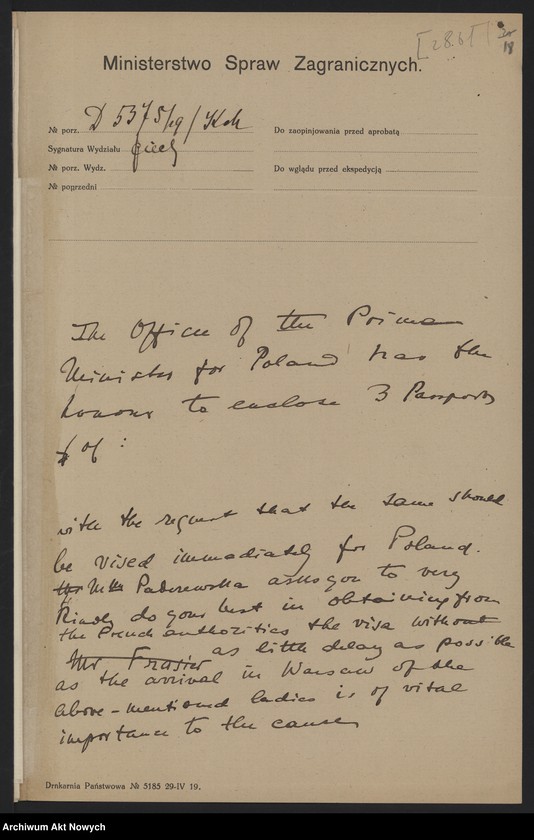 [28.6]
18
Ministerstwo Spraw Zagranicznych.
№ porz. D 5375/19/
Do zaopinjowania przed aprobatą
Sygnatura Wydziału
№ porz. Wydz.
Do wglądu przed ekspedycją
№ poprzedni
The Office of the Prime
Minister for Poland has the
honour to enclose 3 Passports
of :
with the request that the same should
be vised immediately for Poland.
Mme Paderewska asks you to very
kindly do your best in obtaining from
the French authorities the visa without
Mr Frasier as little delay as possible
as the arrival in Warsaw of the
above-mentioned ladies is of vital
importance to the cause
Drukarnia Państwowa № 5185 29-IV 19.
Archiwum Akt Nowych